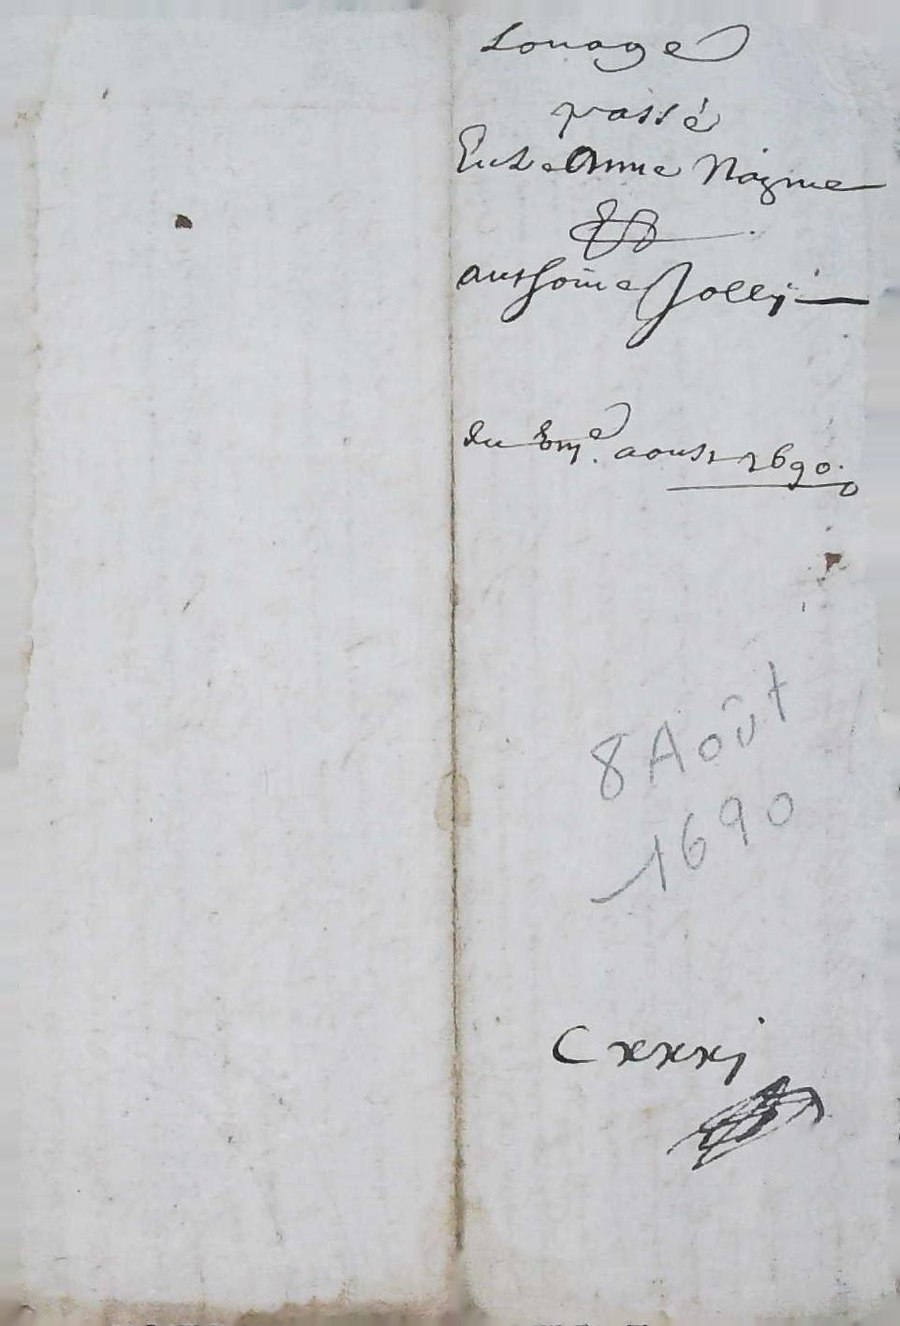 Louage
passé
Entre Anne Nayme
&
anthoine Jolly
du 8me. aoust 1690.
8 Août
1690
Cxxxj